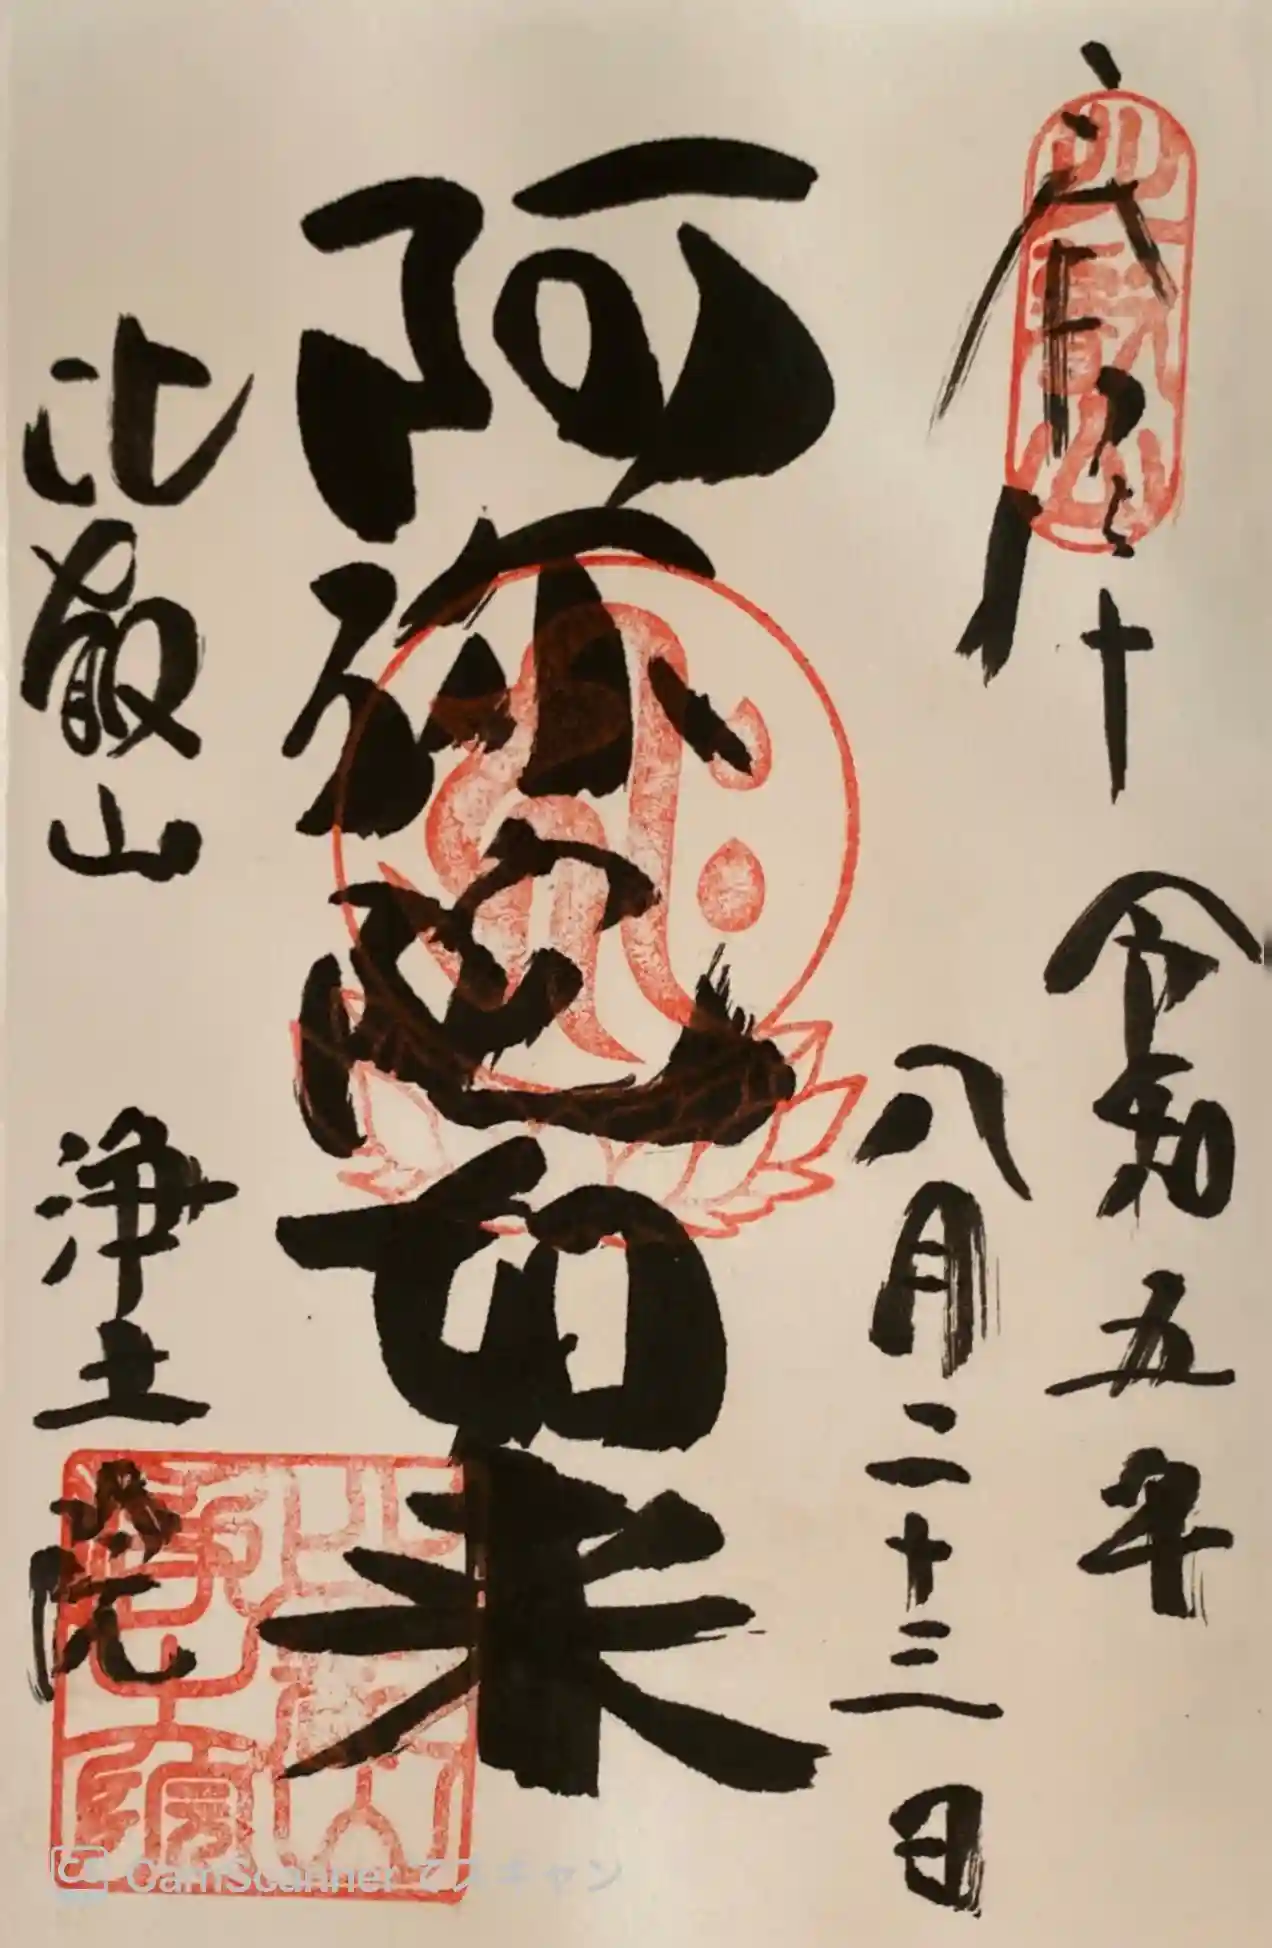 令和五年
八月二十三日
阿弥陀如来
比叡山 浄土院
比叡山
浄土院
CamScanner でスキャン